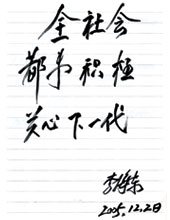 全社会
都来积极
关心下一代
2005.12.2日